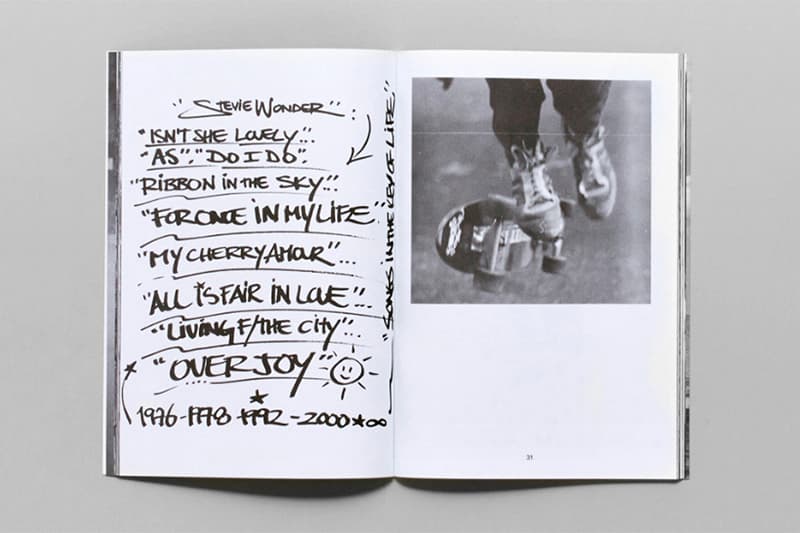 "STEVIE WONDER"
"ISN'T SHE LOVELY"...
"AS". "DO I DO".
"RIBBON IN THE SKY"...
"FOR ONCE IN MY LIFE"..
"MY CHERRY AMOUR"...
"ALL IS FAIR IN LOVE"...
"LIVING F/THE CITY"...
"OVER JOY"
1976-1978-1992-2000★∞
"SONGS IN THE KEY OF LIFE"
31